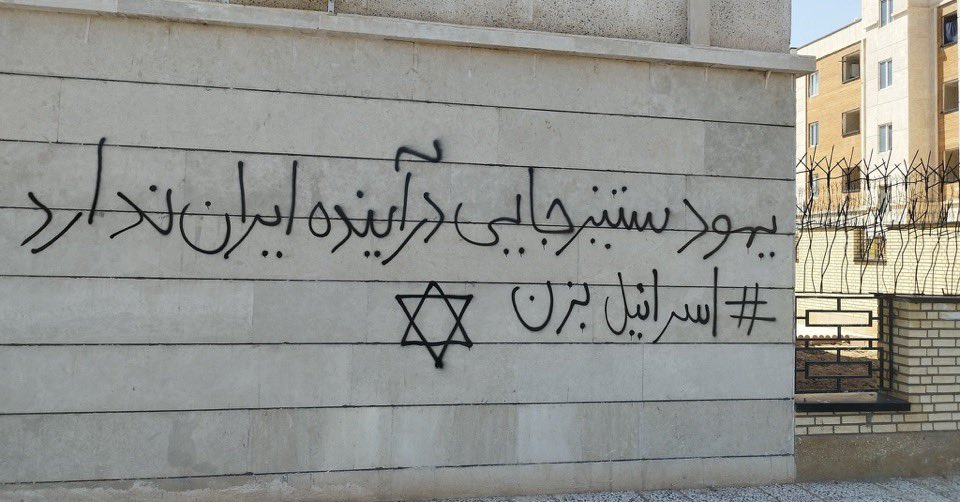 یهود ستیز جایی در آینده ایران ندارد
# اسرائیل بزن